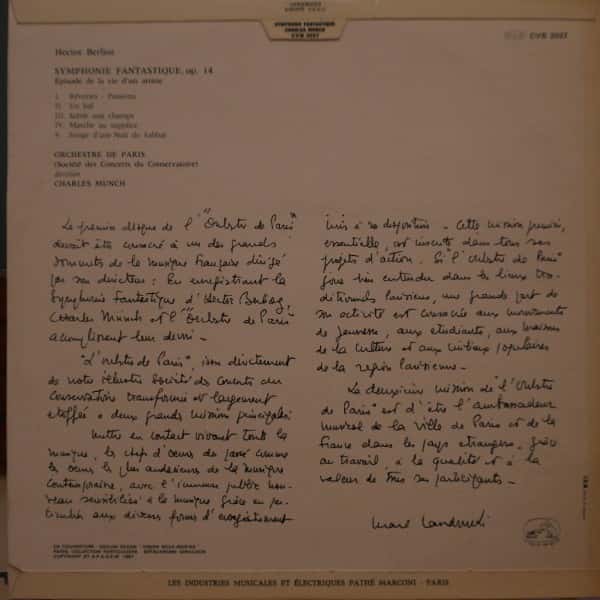 SYMPHONIE FANTASTIQUE
CHARLES MUNCH
CVB 2037
CVB 2037
Hector Berlioz
SYMPHONIE FANTASTIQUE, op. 14
Episode de la vie d'un artiste
I. Rêveries - Passions
II. Un bal
III. Scène aux champs
IV. Marche au supplice
V. Songe d'une Nuit de Sabbat
ORCHESTRE DE PARIS
(Société des Concerts du Conservatoire)
direction
CHARLES MUNCH
Le premier disque de l'"Orchestre de Paris"
devait être consacré à un des grands
sommets de la musique française dirigé
par son directeur : En enregistrant la
Symphonie Fantastique d'Hector Berlioz,
Charles Münch et l'"Orchestre de Paris"
accomplissent leur devoir -
"L'orchestre de Paris", issu directement
de notre illustre Société des Concerts du
Conservatoire transformée et largement
étoffée a deux grandes missions principales :
Mettre en contact vivant toute la
musique, les chefs d'œuvre du passé comme
les œuvres les plus audacieuses de la musique
contemporaine, avec l'immense public nou-
veau sensibilisé à la musique grâce en par-
ticulier aux diverses formes d'enregistrement
mis à sa disposition - Cette mission première,
essentielle, est inscrite dans tous ses
projets d'action. Si l'"Orchestre de Paris"
se fera bien entendre dans les lieux tra-
ditionnels parisiens, une grande part de
son activité est consacrée aux mouvements
de jeunesse, aux étudiants, aux maisons
de la culture et aux milieux populaires
de la région parisienne -
La deuxième mission de l'"Orchestre
de Paris" est d'être l'ambassadeur
musical de la ville de Paris et de la
France dans les pays étrangers, grâce
au travail, à la qualité et à la
valeur de tous ses participants -
Marcel Landowski
LES INDUSTRIES MUSICALES ET ÉLECTRIQUES PATHÉ MARCONI - PARIS